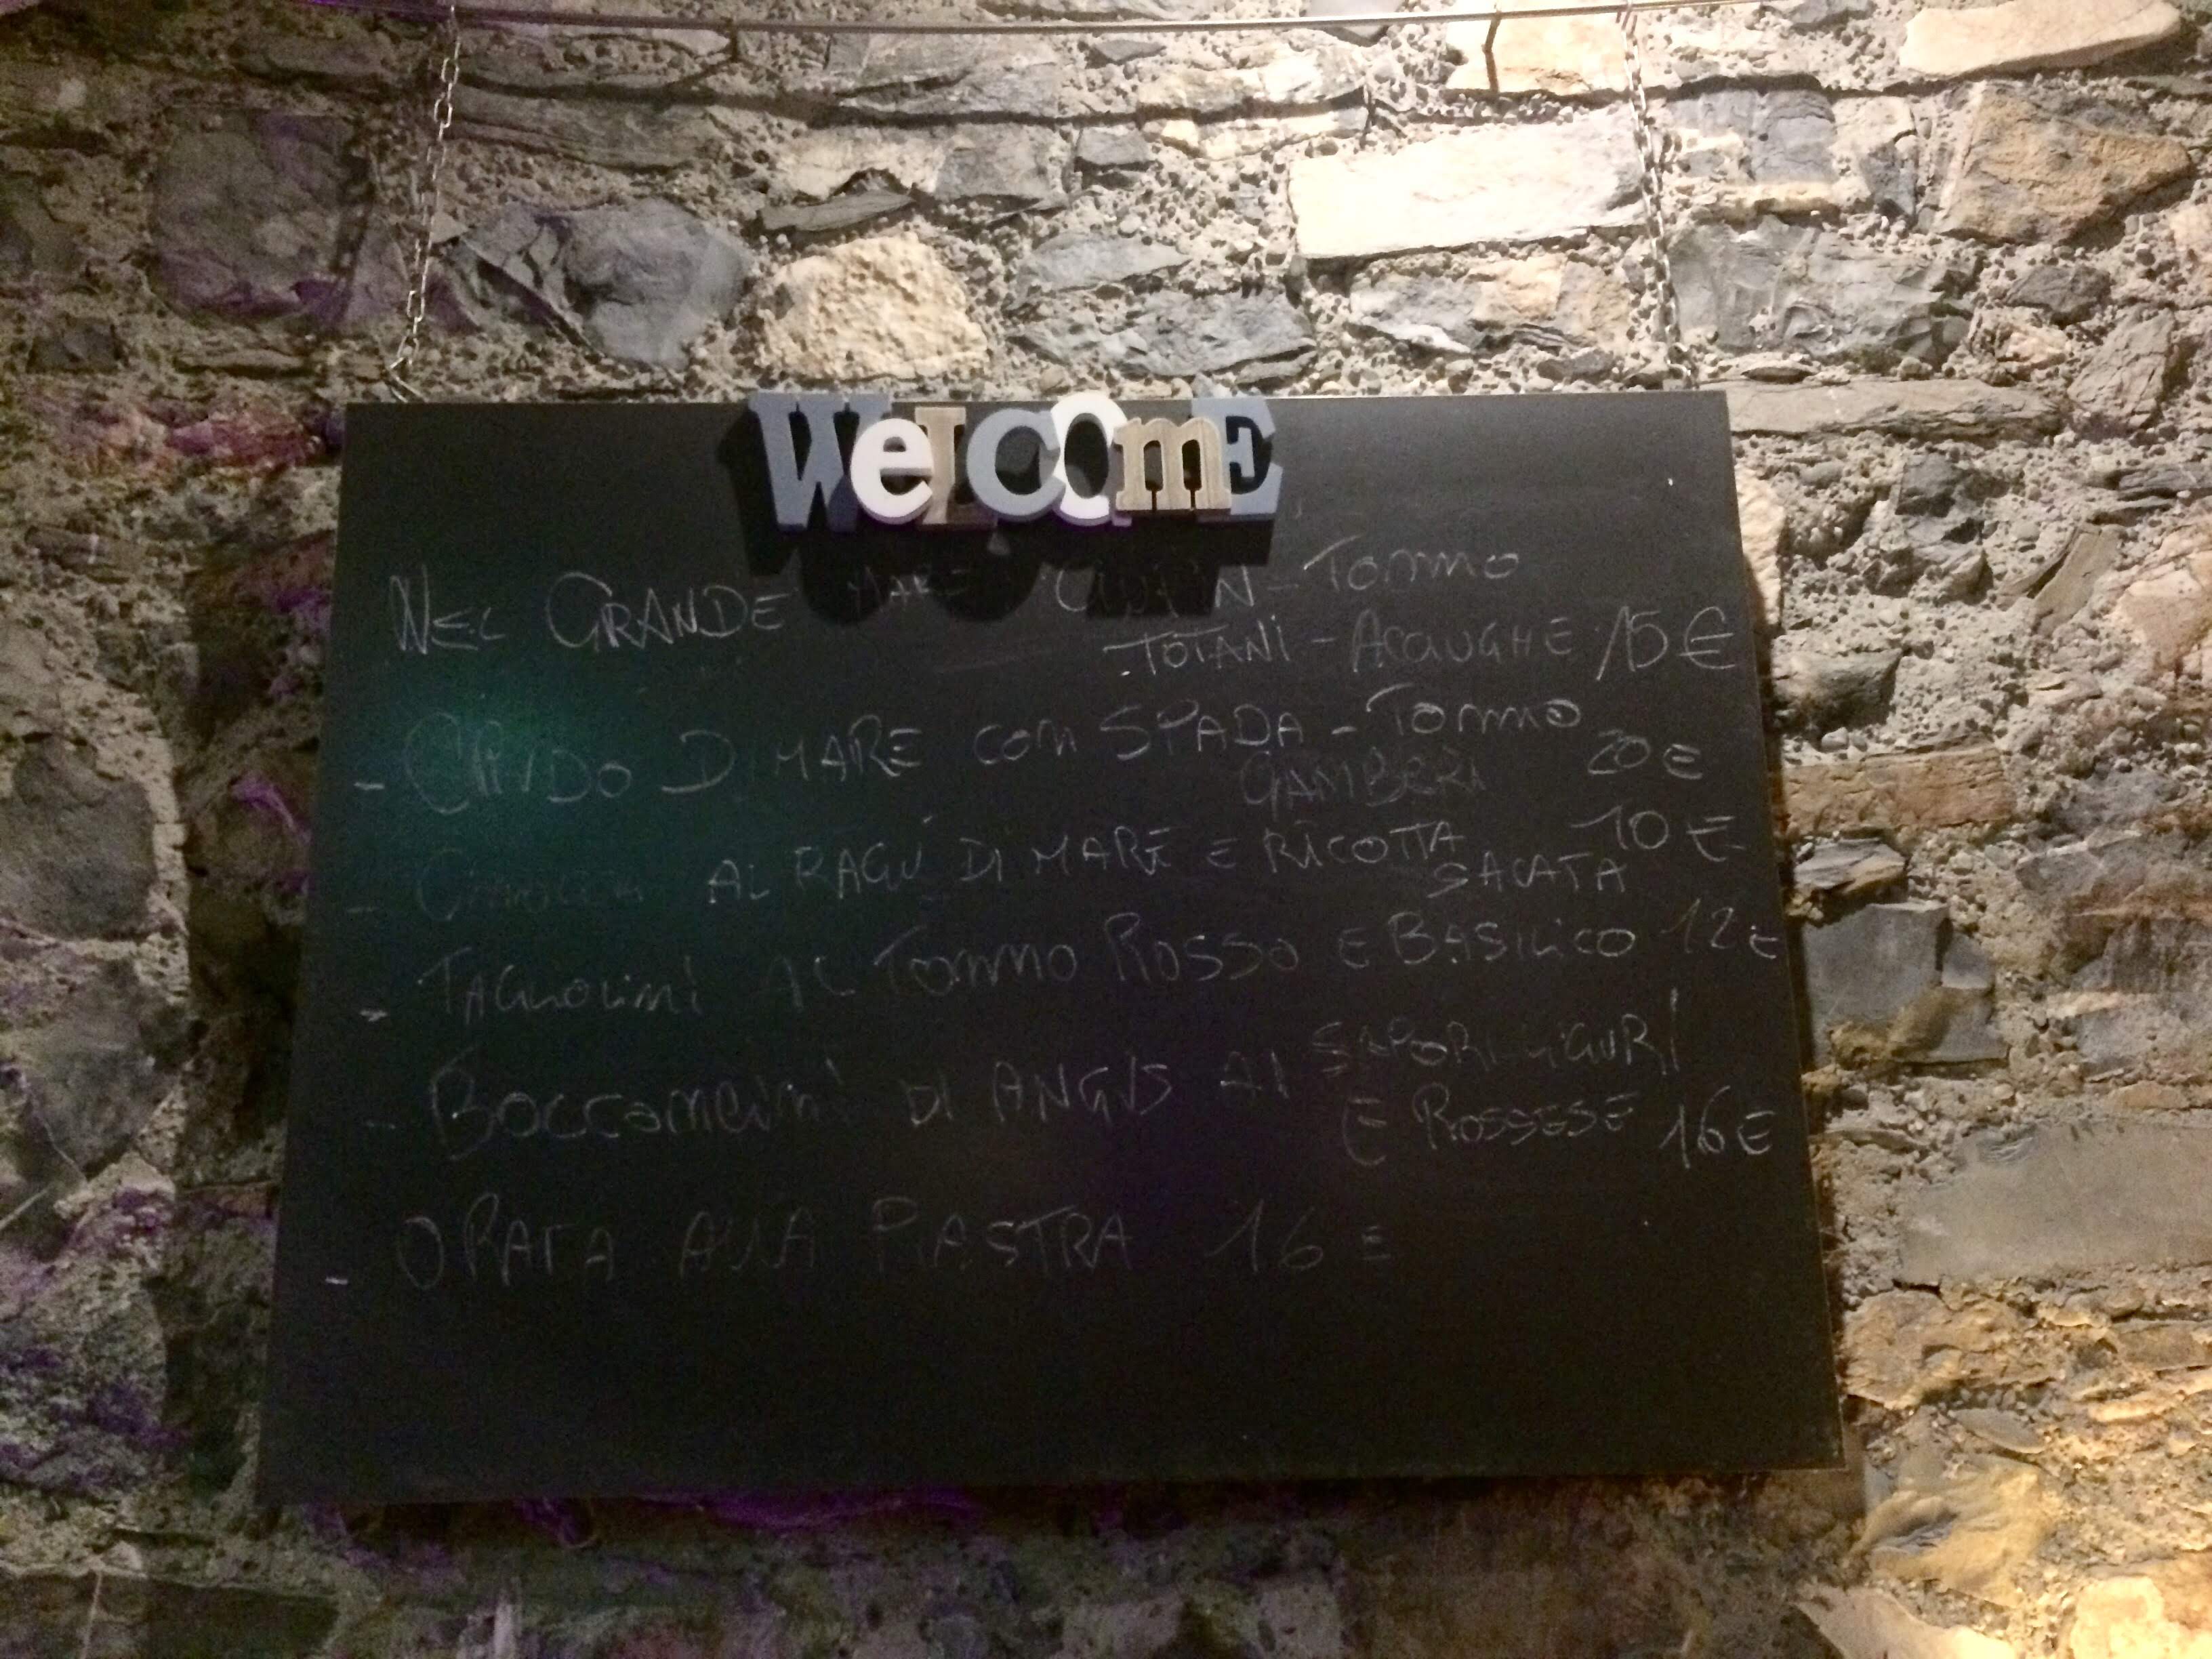 WELCOME
NEL GRANDE MARE - TONNO
- TOTANI - ACCIUGHE 15 €
- CRUDO DI MARE CON SPADA - TONNO
GAMBERI 20 €
- AL RAGÙ DI MARE E RICOTTA 10 €
SALATA
- TAGLIOLINI AL TONNO ROSSO E BASILICO 12 €
- BOCCONCINI DI ANGUS AI SAPORI LIGURI
E ROSSESE 16 €
- ORATA ALLA PIASTRA 16 €